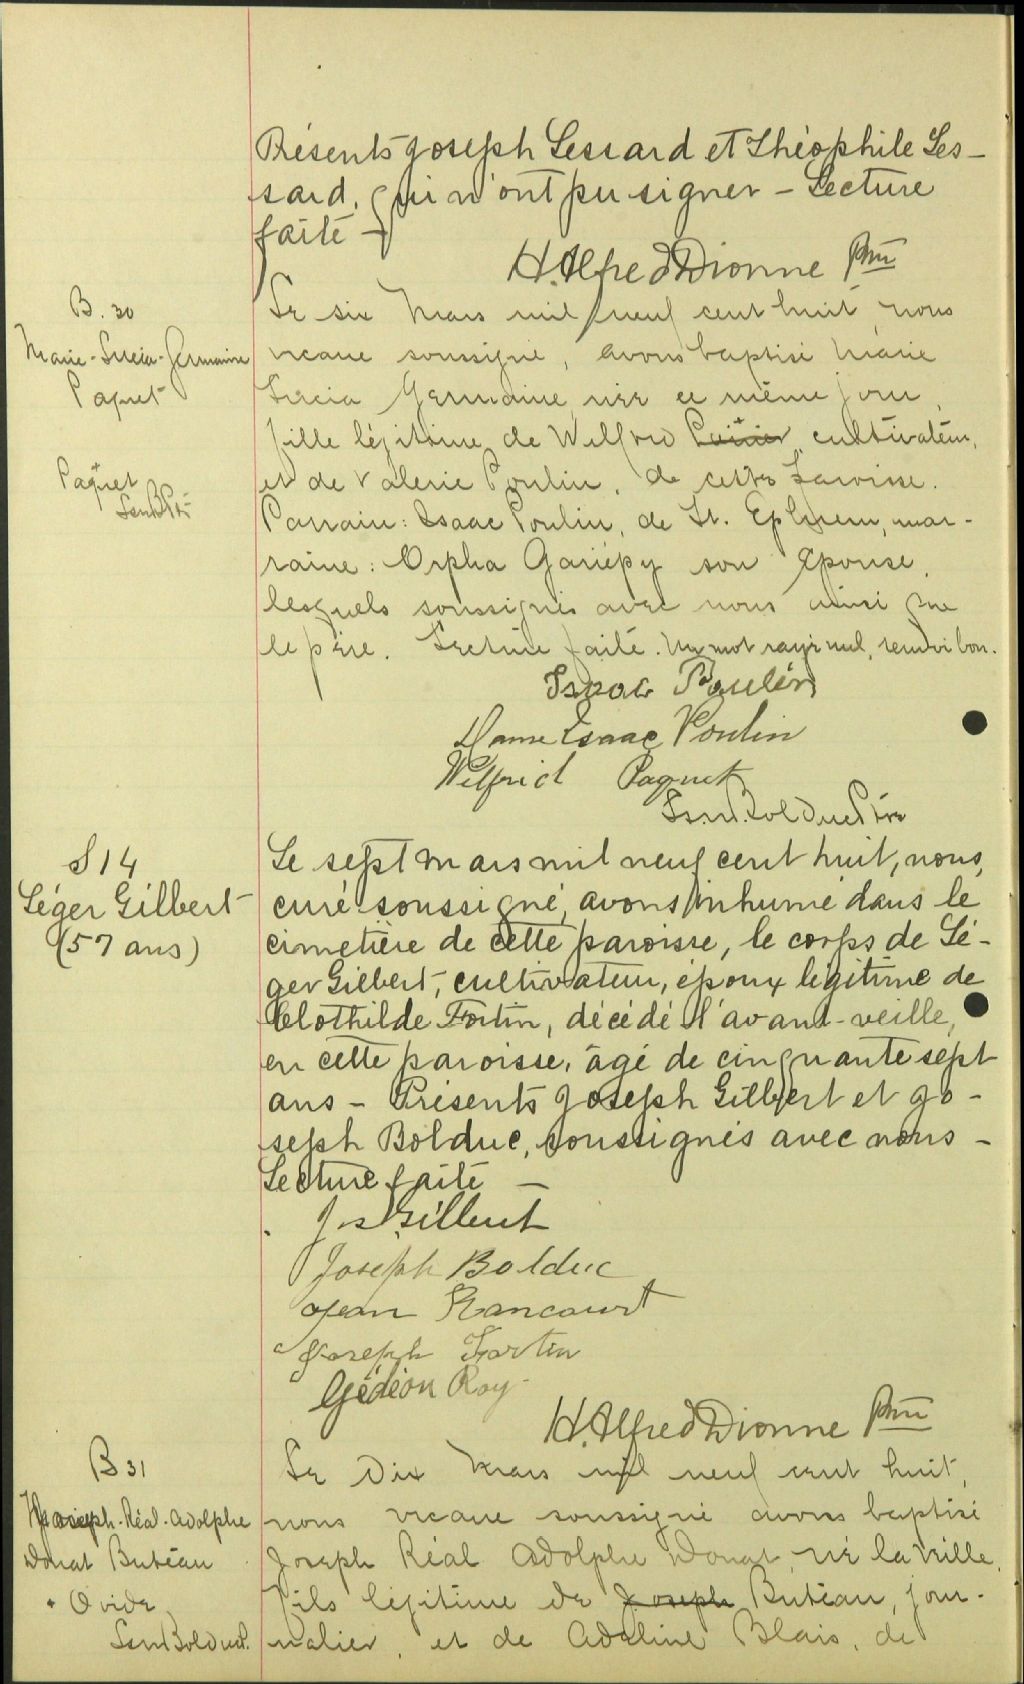 Présents Joseph Lessard et Théophile Les-
sard, qui n'ont pu signer - Lecture
faite -
H. Alfred Dionne Ptre
B. 30
Marie-Lucia-Germaine
Paquet
Le six Mars mil neuf cent huit, nous
vicaire soussigné, avons baptisé Marie
Lucia Germaine née ce même jour,
fille légitime de Wilfrid Poirier, cultivateur,
Paquet
et de Valerie Poulin, de cette Paroisse.
Parrain: Isaac Poulin, de St. Ephrem, mar-
raine: Orpha Gariépy son Epouse,
lesquels soussignés avec nous ainsi que
le père. Lecture faite. Un mot rayé nul, renvoi bon.
Isaac Poulin
Dame Isaac Poulin
Wilfrid Paquet
Bolduc Ptre
S 14
Léger Gilbert
(57 ans)
Le sept mars mil neuf cent huit, nous,
curé soussigné, avons inhumé dans le
cimetière de cette paroisse, le corps de Lé-
ger Gilbert, cultivateur, époux légitime de
Clothilde Fortin, décédé l'avant-veille,
en cette paroisse, âgé de cinquante sept
ans - Présents Joseph Gilbert et Jo-
seph Bolduc, soussignés avec nous -
Lecture faite -
Jos Gilbert
Joseph Bolduc
Jean Rancourt
Joseph Fortin
Gédéon Roy
H. Alfred Dionne Ptre
B 31
Joseph-Réal-Adolphe
Donat Buteau
+ Ovide
Bolduc
Le Dix Mars mil neuf cent huit,
nous vicaire soussigné avons baptisé
Joseph Réal Adolphe Donat né la veille,
fils légitime de Joseph Buteau, jour-
nalier, et de Adeline Blais, de